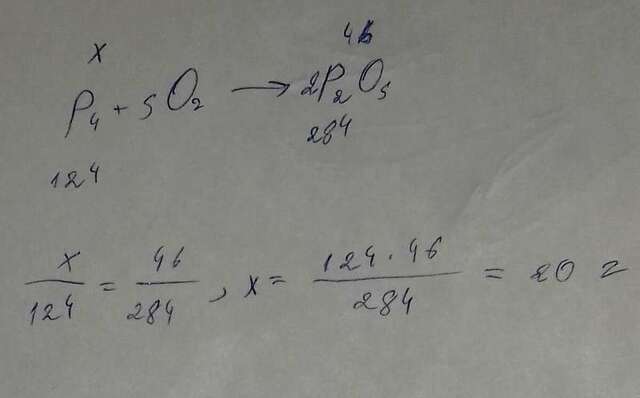 x 46
P₄ + 5O₂ → 2P₂O₅
124 284
x/124 = 46/284, x = 124·46/284 = 20 г